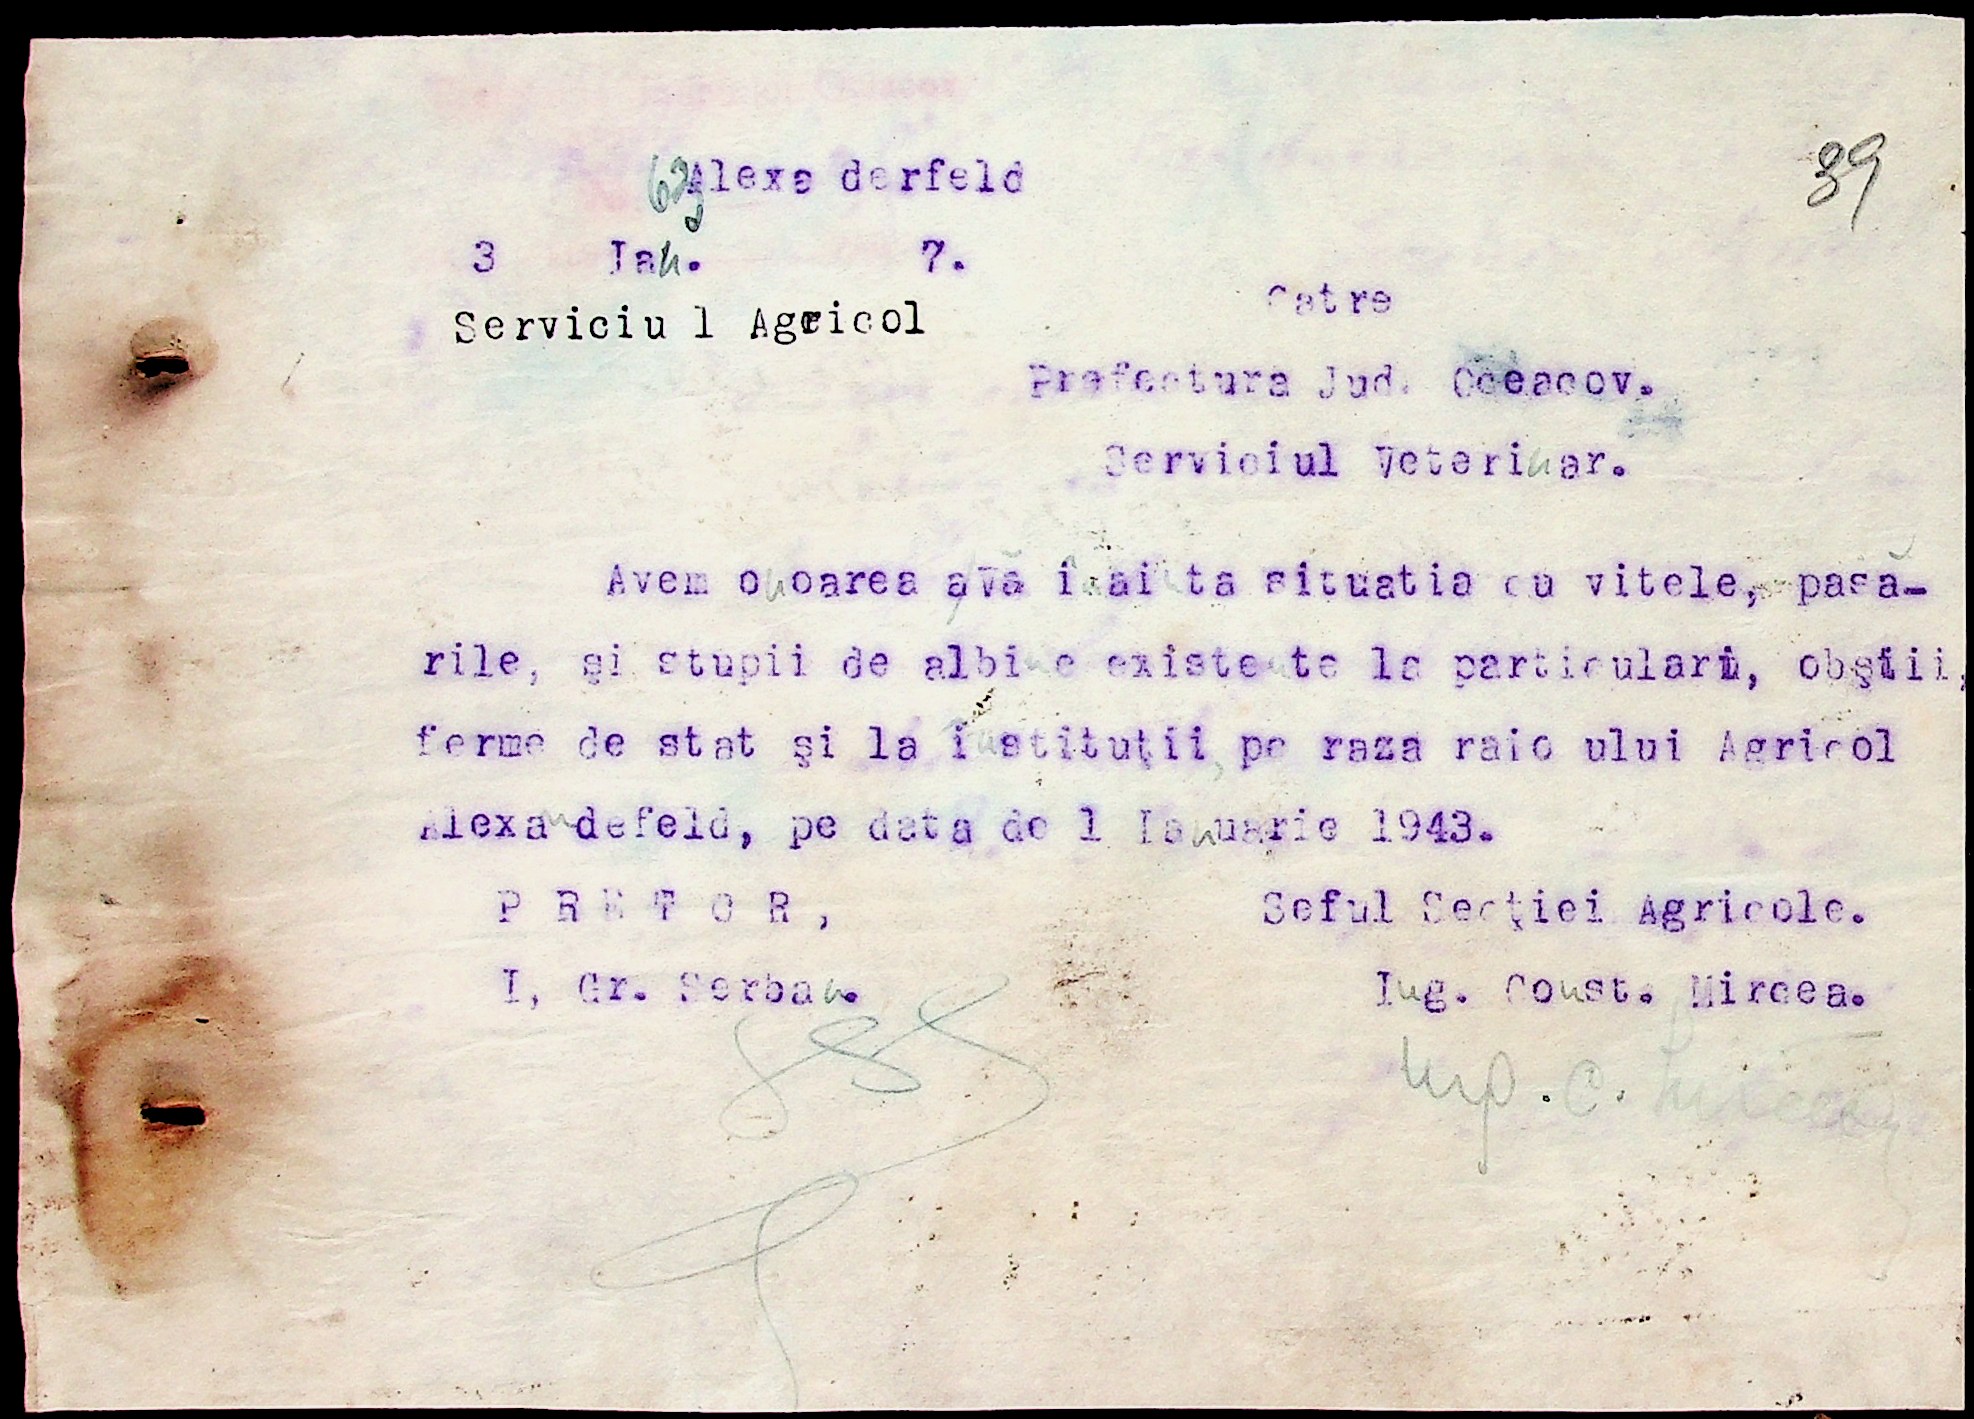 39
Alexa derfeld
3 Ian. 7.
Serviciu l Agricol
Catre
Prefectura Jud. Oceacov.
Serviciul Veterinar.
Avem onoarea a vă înai ta situatia cu vitele, pasă-
rile, şi stupii de albine existente la particulari, obştii,
ferme de stat şi la instituţii, pe raza raio ului Agricol
Alexandefeld, pe data de 1 Ianuarie 1943.
P R E T O R , Seful Secţiei Agricole.
I, Gr. Serban. Ing. Const. Mircea.